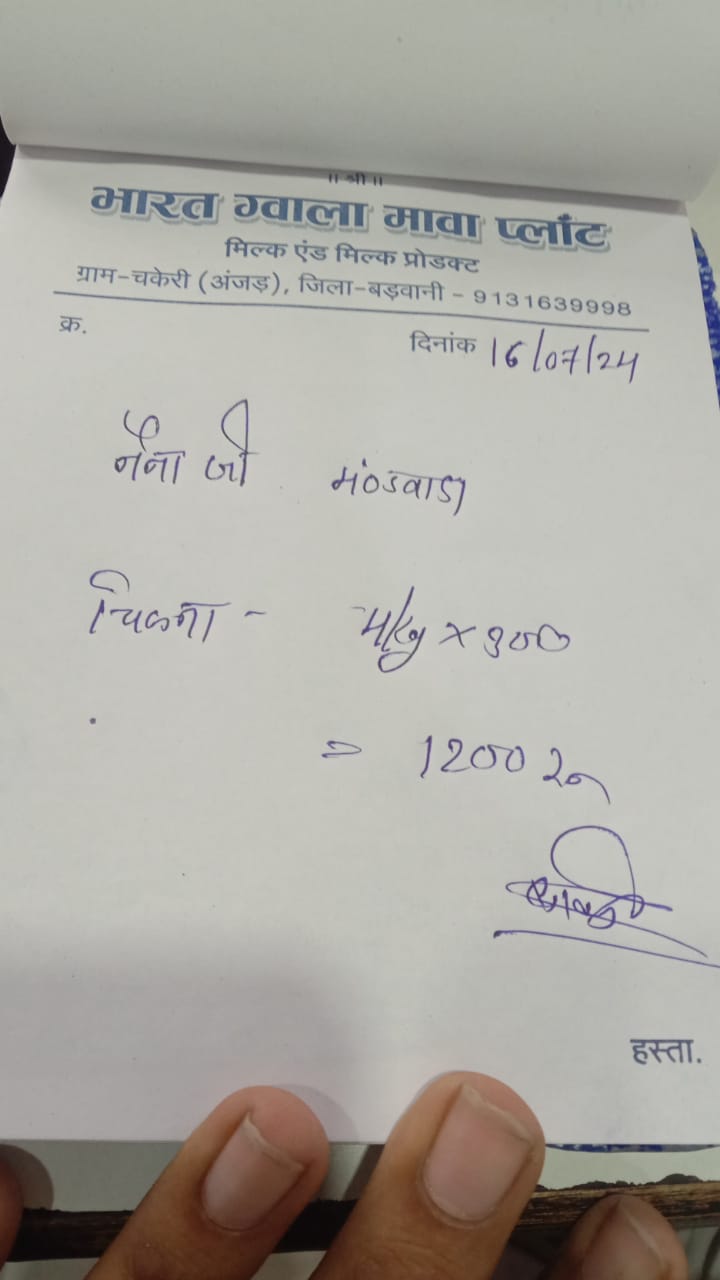 ॥ श्री ॥
भारत ग्वाला मावा प्लाँट
मिल्क एंड मिल्क प्रोडक्ट
ग्राम-चकेरी (अंजड़), जिला-बड़वानी - 9131639998
क्र. दिनांक 16/07/24
नैना जी मंडवाडा
चिकना - 4/kg × ३००
= 1200 रु
हस्ता.